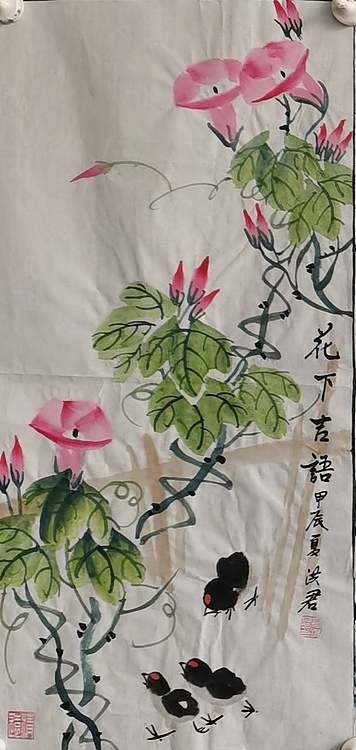 花下吉語
甲辰夏洪君